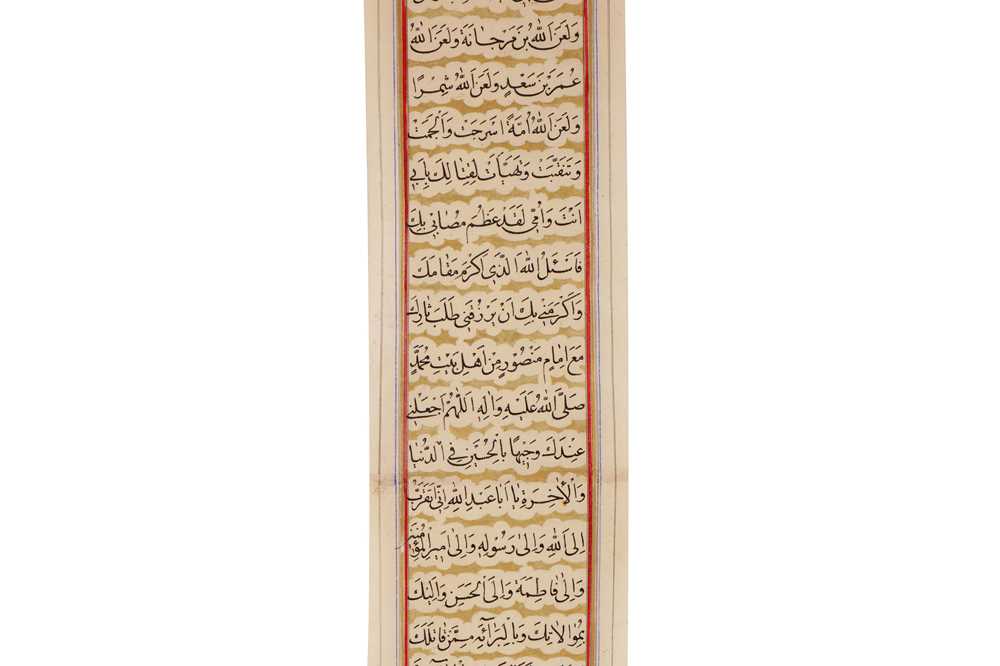 وَلَعَنَ اللهُ بْنَ مَرْجَانَةَ وَلَعَنَ اللهُ
عُمَرَ بْنَ سَعْدٍ وَلَعَنَ اللهُ شِمْرًا
وَلَعَنَ اللهُ اُمَّةً اَسْرَجَتْ وَاَلْجَمَتْ
وَتَنَقَّبَتْ وَتَهَيَّاَتْ لِقِتَالِكَ بِاَبِي
اَنْتَ وَاُمِّي لَقَدْ عَظُمَ مُصَابِي بِكَ
فَاَسْئَلُ اللهَ الَّذِي اَكْرَمَ مَقَامَكَ
وَاَكْرَمَنِي بِكَ اَنْ يَرْزُقَنِي طَلَبَ ثَارِكَ
مَعَ اِمَامٍ مَنْصُورٍ مِنْ اَهْلِ بَيْتِ مُحَمَّدٍ
صَلَّى اللهُ عَلَيْهِ وَالِهِ اَللّٰهُمَّ اجْعَلْنِي
عِنْدَكَ وَجِيهًا بِالْحُسَيْنِ فِي الدُّنْيَا
وَالْاٰخِرَةِ يَا اَبَا عَبْدِ اللهِ اِنِّي اَتَقَرَّبُ
اِلَى اللهِ وَاِلٰى رَسُولِهِ وَاِلٰى اَمِيرِ الْمُؤْمِنِينَ
وَاِلٰى فَاطِمَةَ وَاِلَى الْحَسَنِ وَاِلَيْكَ
بِمُوَالَاتِكَ وَبِالْبَرَآئَةِ مِمَّنْ قَاتَلَكَ